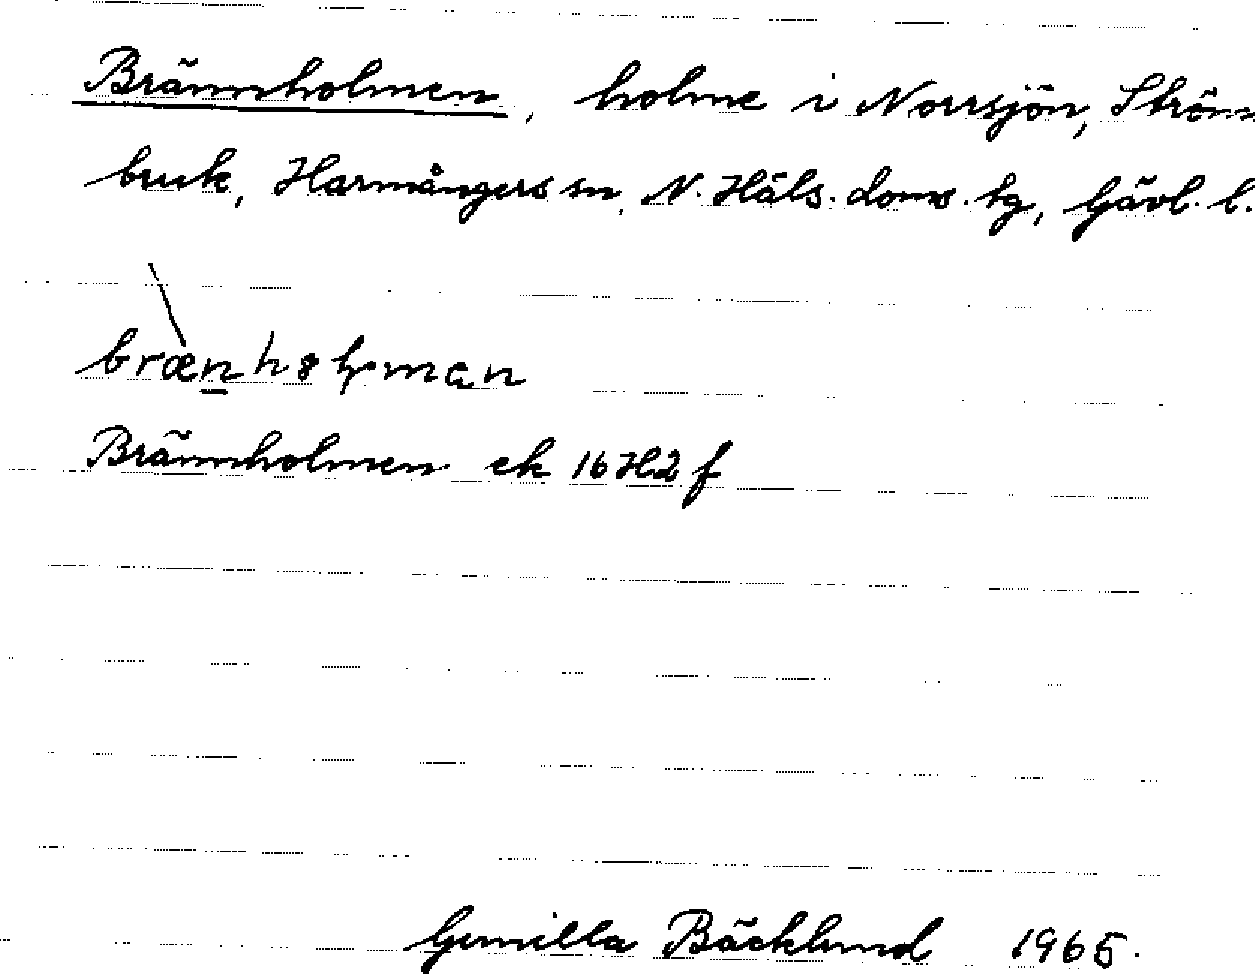 Brännholmen, holme i Norrsjön, Ström
bruk, Harmångers sn, N. Häls. doms. tg, Gävl. l.
brænhol̥man
Brännholmen ek 16 H2 f
Gunilla Bäcklund 1965.